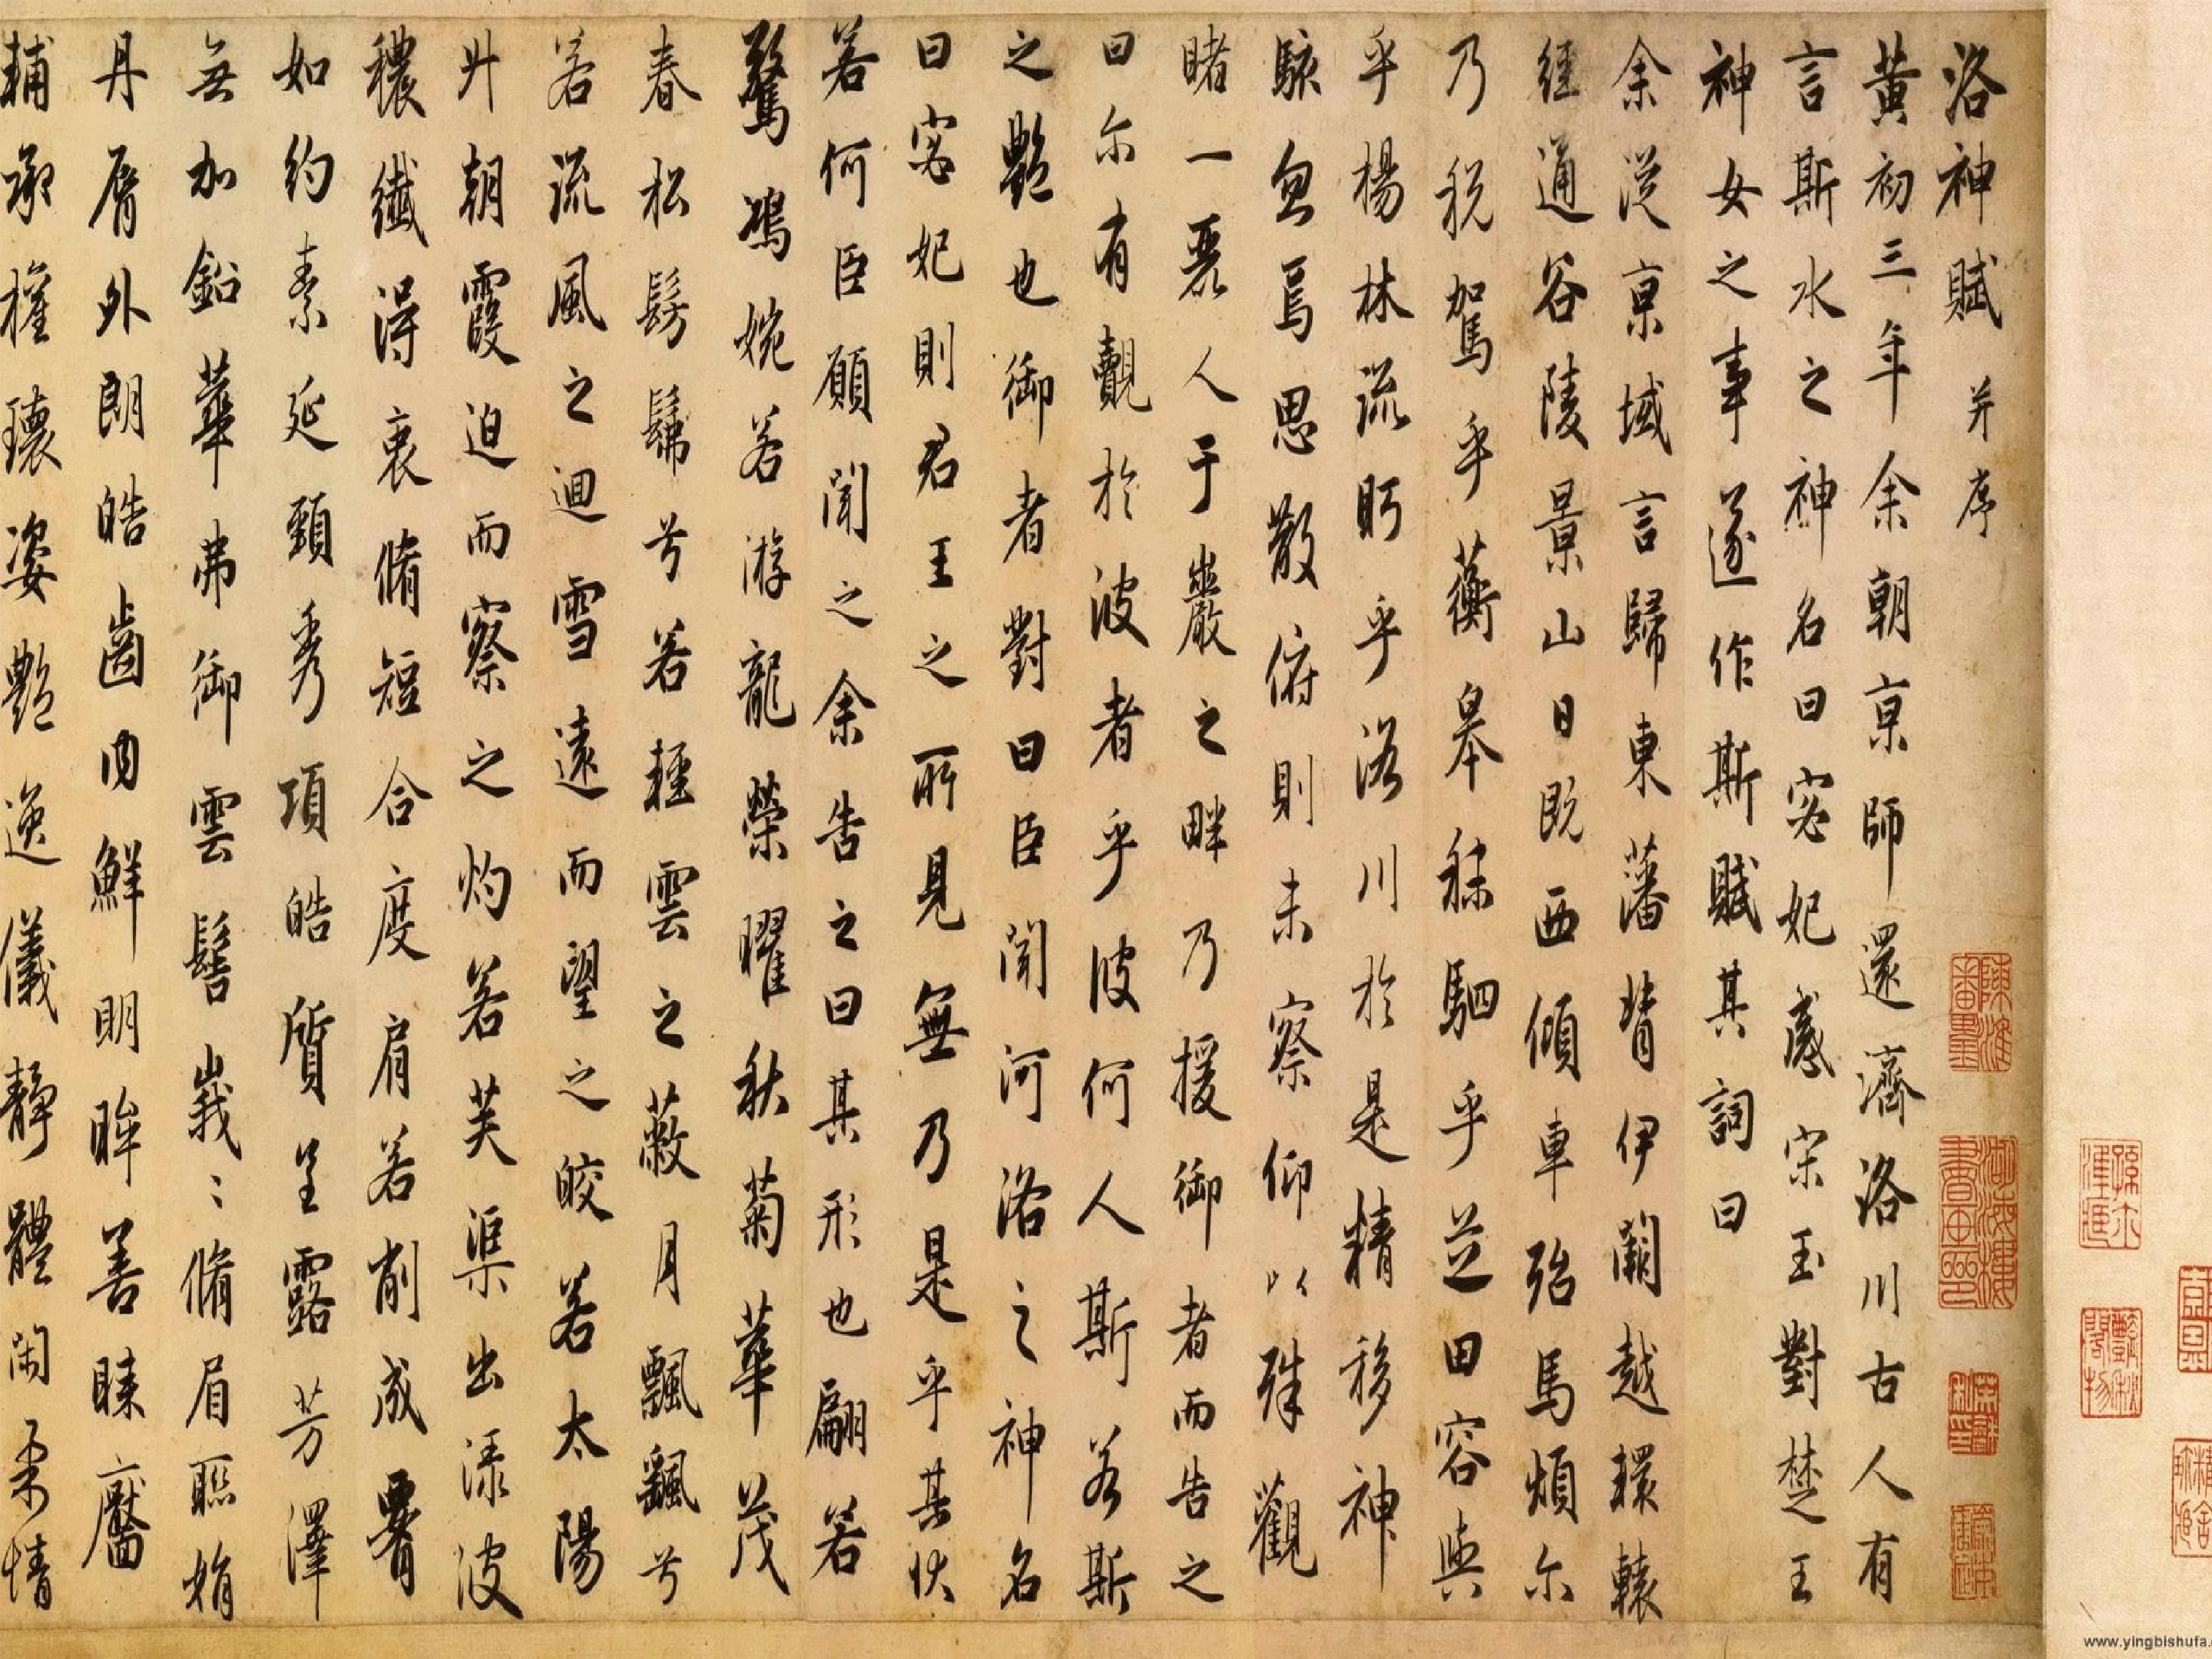 洛神賦 并序
黃初三年余朝京師還濟洛川古人有
言斯水之神名曰宓妃感宋玉對楚王
神女之事遂作斯賦其詞曰
余從京域言歸東藩背伊闕越轘轅
經通谷陵景山日既西傾車殆馬煩尔
乃税駕乎蘅皋秣駟乎芝田容與
乎楊林流眄乎洛川於是精移神
駭忽焉思散俯則未察仰以殊觀
睹一麗人于巖之畔乃援御者而告之
曰尔有覿於彼者乎彼何人斯若斯
之艷也御者對曰臣聞河洛之神名
曰宓妃則君王之所見無乃是乎其狀
若何臣願聞之余告之曰其形也翩若
驚鴻婉若游龍榮曜秋菊華茂
春松髣髴兮若輕雲之蔽月飄飖兮
若流風之迴雪遠而望之皎若太陽
升朝霞迫而察之灼若芙渠出淥波
穠纖得衷脩短合度肩若削成署
如約素延頸秀項皓質呈露芳澤
無加鉛華弗御雲髻峩〻脩眉聯娟
丹脣外朗皓齒内鮮明眸善睞靨
輔承權瓌姿艷逸儀靜體閑柔情
www.yingbishufa.